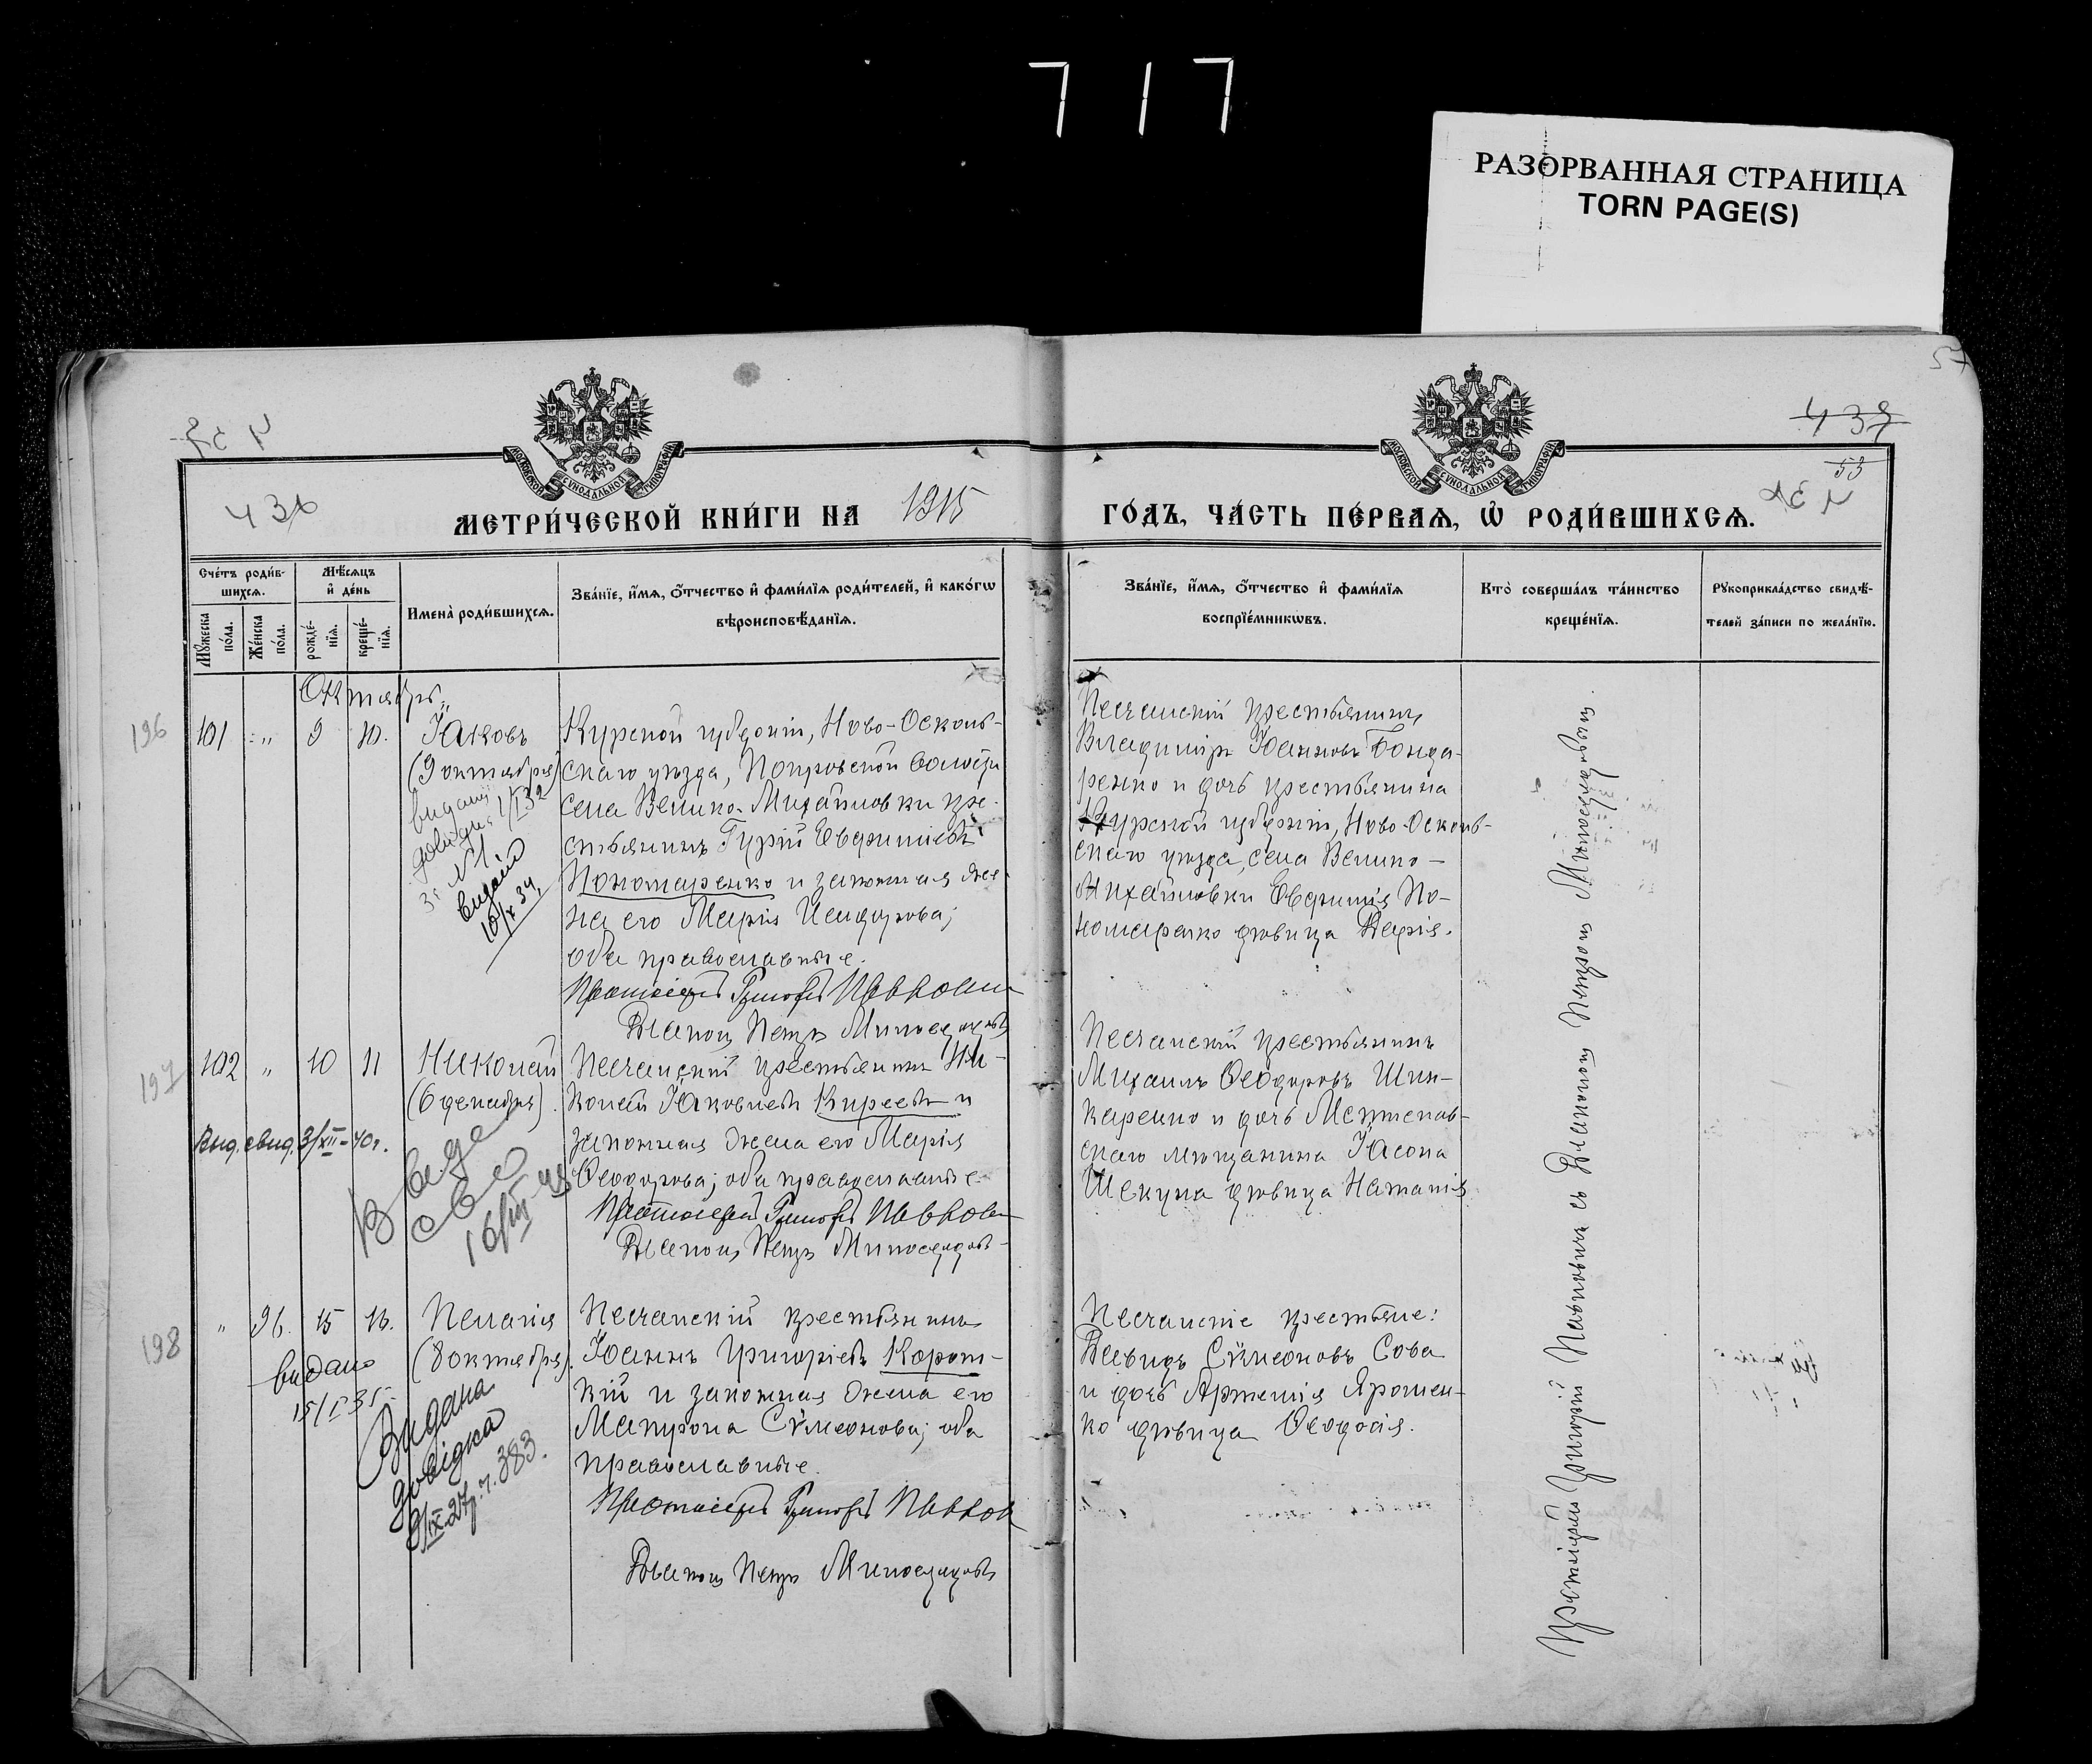 717
РАЗОРВАННАЯ СТРАНИЦА
TORN PAGE(S)
57
436
437
53
МОСКОВСКОЙ СѴНОДАЛЬНОЙ ТИПОГРАФІИ
МОСКОВСКОЙ СѴНОДАЛЬНОЙ ТИПОГРАФІИ
МЕТРИ́ЧЕСКОЙ КНИ́ГИ НА 1915
ГО́ДЪ, ЧА́СТЬ ПЕ́РВАѦ, Ѡ҆ РОДИ́ВШИХСѦ.
Сче́тъ роди́в-
шихсѧ.
Мѹ́жеска по́ла.
Же́нска по́ла.
Мѣ́сѧцъ
и҆ де́нь
рожде́-
нїѧ.
креще́-
нїѧ.
И҆мена̀ роди́вшихсѧ.
Зва́нїе, и҆́мѧ, ѻ҆́тчество и҆ фами́лїѧ роди́телей, и҆ како́гѡ
вѣроисповѣ́данїѧ.
Зва́нїе, и҆́мѧ, ѻ҆́тчество и҆ фами́лїѧ
воспрїе́мникѡвъ.
Кто̀ соверша́лъ та́инство
креще́нїѧ.
Рꙋкоприкла́дство свидѣ́-
телей за́писи по жела́нїю.
Октябрь
196
101 " 9 10.
Іаковъ
(9 октября)
видана
довідка 1/I 32
№1
Видано
10/X 34
Курской губерніи, Ново-Осколь-
скаго уѣзда, Покровской волости
села Велико-Михайловки кре-
стьянинъ Гурій Евфиміевъ
Пономаренко и законная же-
на его Марія Исидорова;
оба православные.
Протоіерей Григорій Павлович
Діаконъ Петръ Милосердовъ
Песчанскій крестьянинъ
Владиміръ Іоанновъ Бонда-
ренко и дочь крестьянина
Курской губерніи, Ново-Осколь-
скаго уѣзда, села Велико-
Михайловки Евфимія По-
номаренко дѣвица Вѣра.
197
102 " 10 11
Николай
(6 декабря).
Выд. свид. 3/XII-40 г.
Песчанскій крестьянинъ Ни-
колай Іаковлевъ Киреевъ и
законная жена его Марія
Ѳеодорова; оба православные
Протоіерей Григорій Павлович
Діаконъ Петръ Милосердовъ
Песчанскій крестьянинъ
Михаилъ Ѳеодоровъ Шин-
каренко и дочь
скаго мѣщанина Іасона
Шекуна дѣвица Наталія
198
" 96. 15 16.
Пелагія
(8 октября).
видано
15/I 35
Видана
довідка
9/IX-27 р. ч. 383.
Песчанскій крестьянинъ
Іоаннъ Григоріевъ Корот-
кій и законная жена его
Матрона Сѵмеонова; оба
православные.
Протоіерей Григорій Павлович
Діаконъ Петръ Милосердовъ
Песчанскіе крестьяне:
Давидъ Сѵмеоновъ Сова
и дочь Артемія Яромен-
ко дѣвица Ѳеодосія.
Протоіерей Григорій Павловичъ съ Діакономъ Петромъ Милосердовымъ.